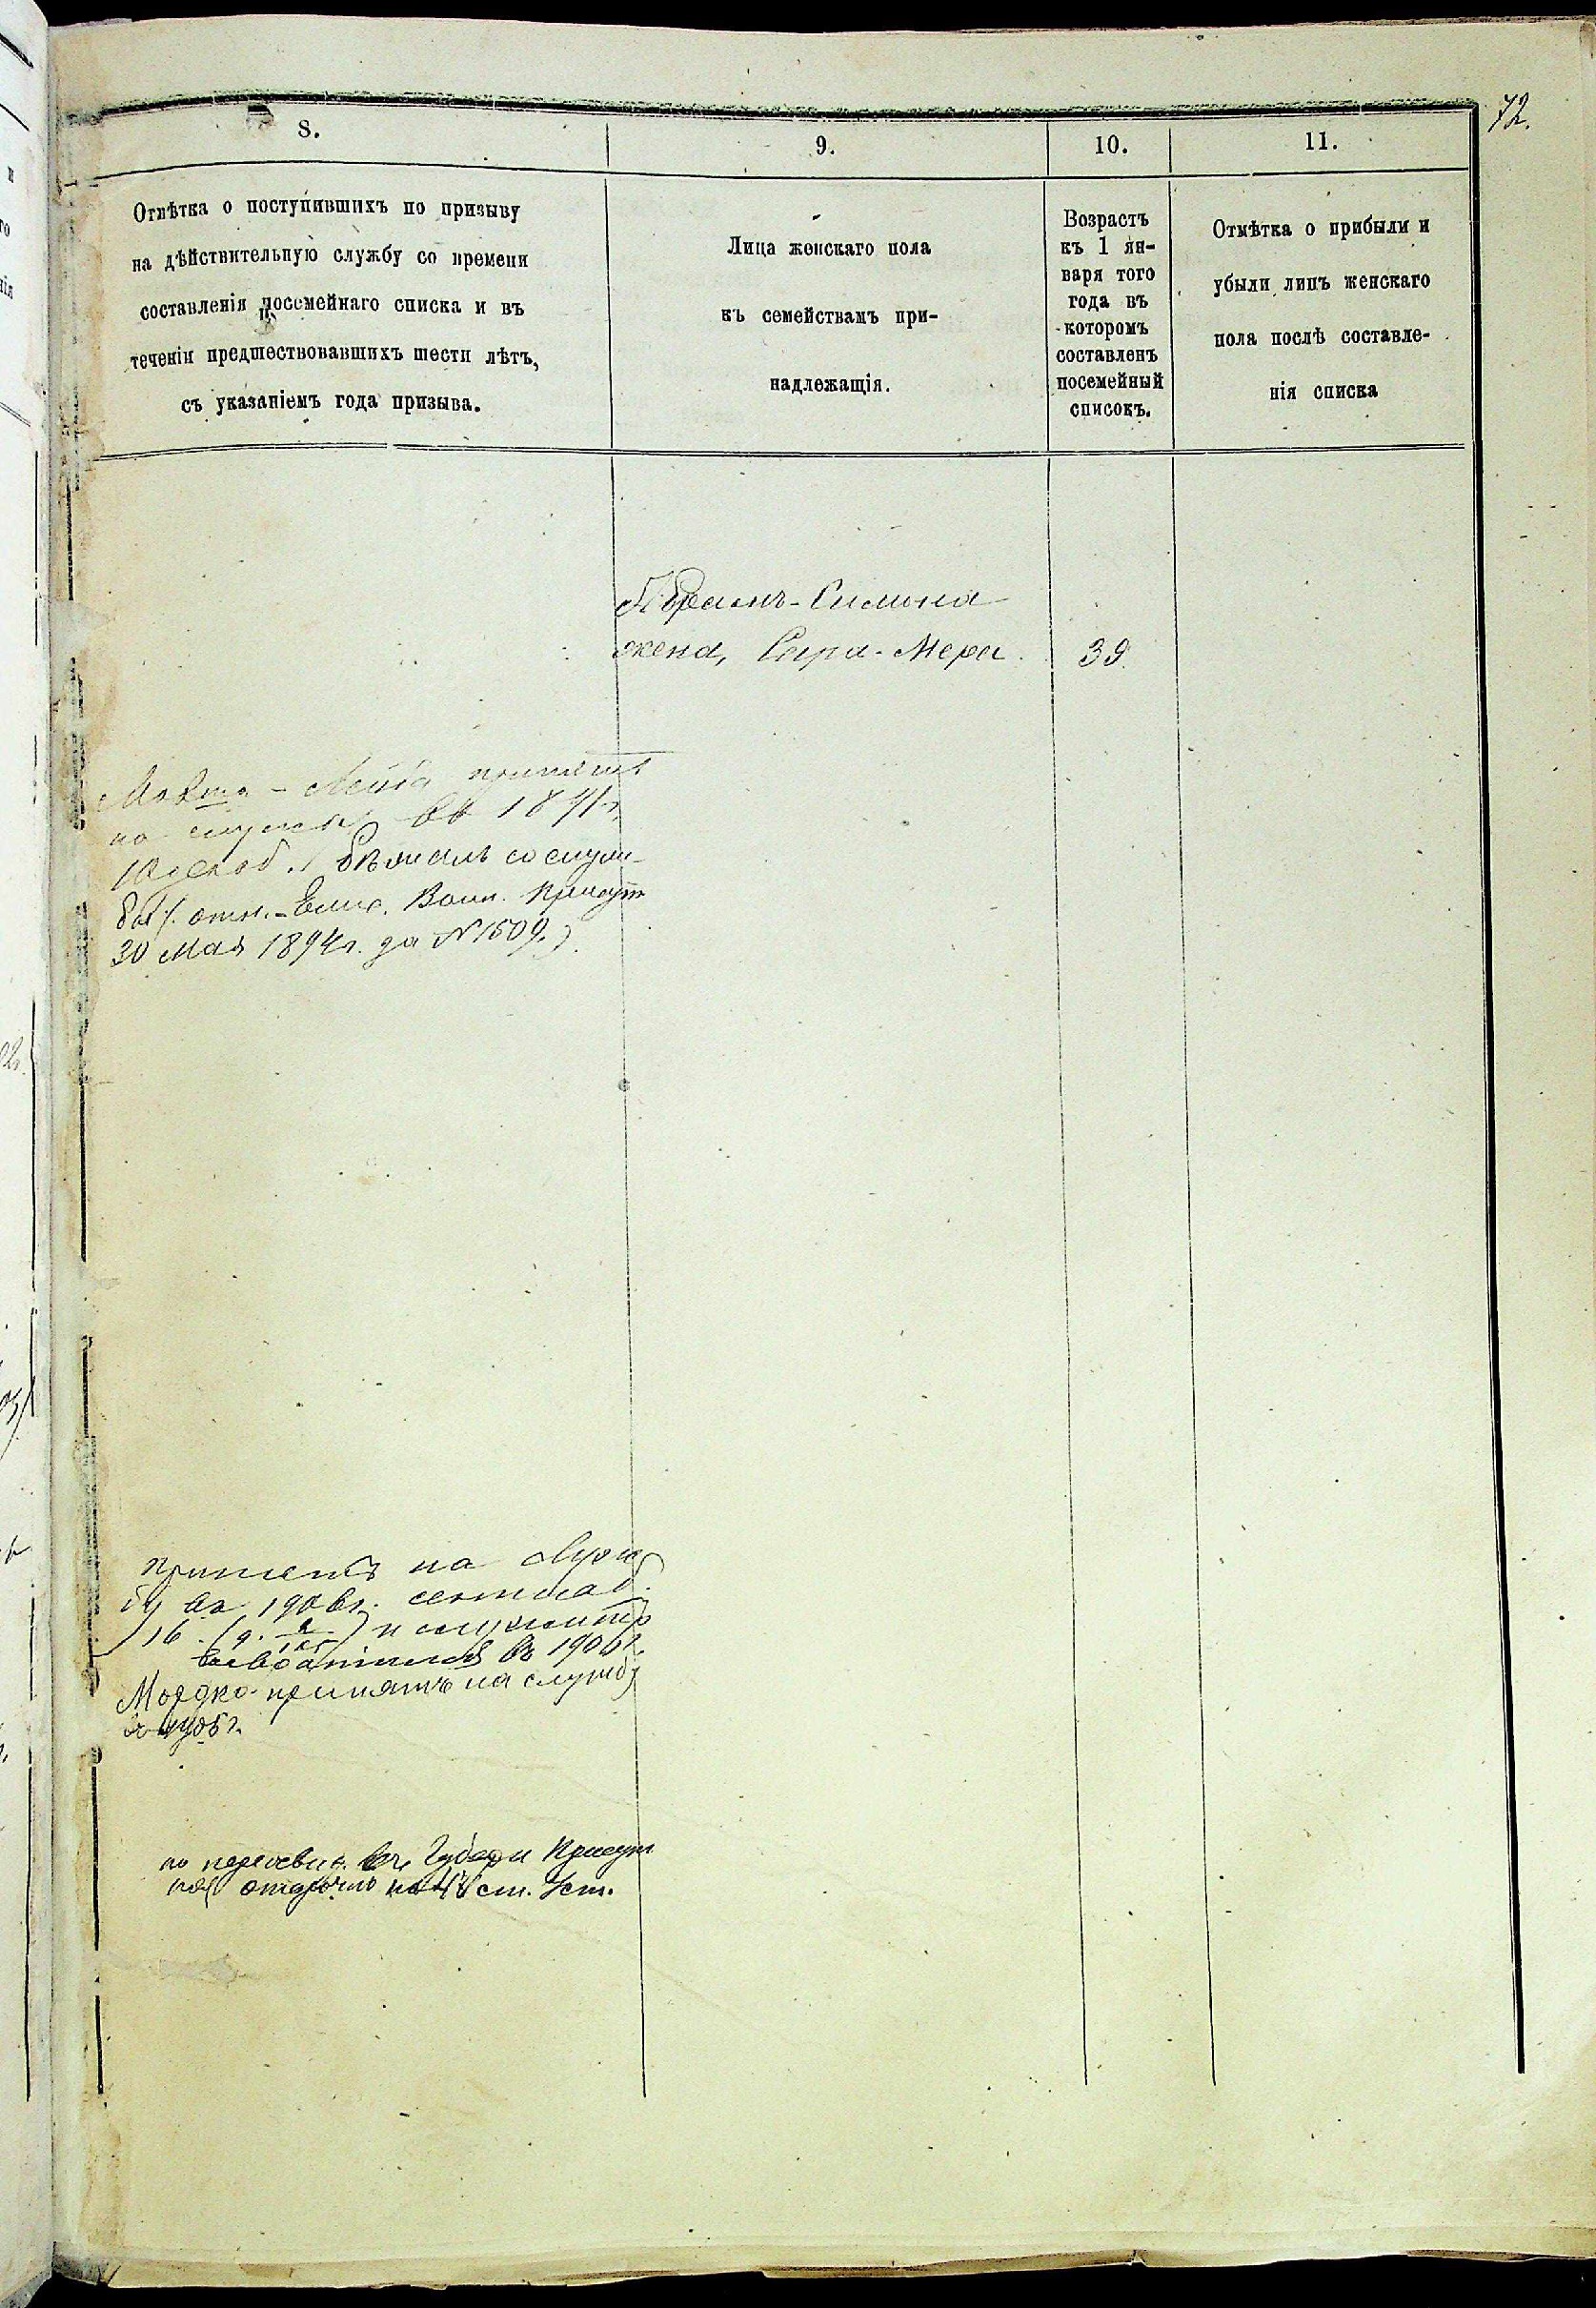 72.
8.
9.
10.
11.
Отмѣтка о поступившихъ по призыву
на дѣйствительную службу со времени
составленія посемейнаго списка и въ
теченіи предшествовавшихъ шести лѣтъ,
съ указаніемъ года призыва.
Лица женскаго пола
къ семействамъ при-
надлежащія.
Возрастъ
къ 1 ян-
варя того
года въ
которомъ
составленъ
посемейный
списокъ.
Отмѣтка о прибыли и
убыли лицъ женскаго
пола послѣ составле-
нія списка
Абрамъ-Симона
жена, Сара-Мера 39.
принятъ
на службу въ
Бѣжалъ со служ-
бы (отн. Елис. Воин. Присут
30 Мая 1894 г. за № 1509.)
принятъ на служ
бу въ 1906 г.
16
въ
Мордко принятъ на службу
по переосвид. въ Губерн Присут
ст. Уст.